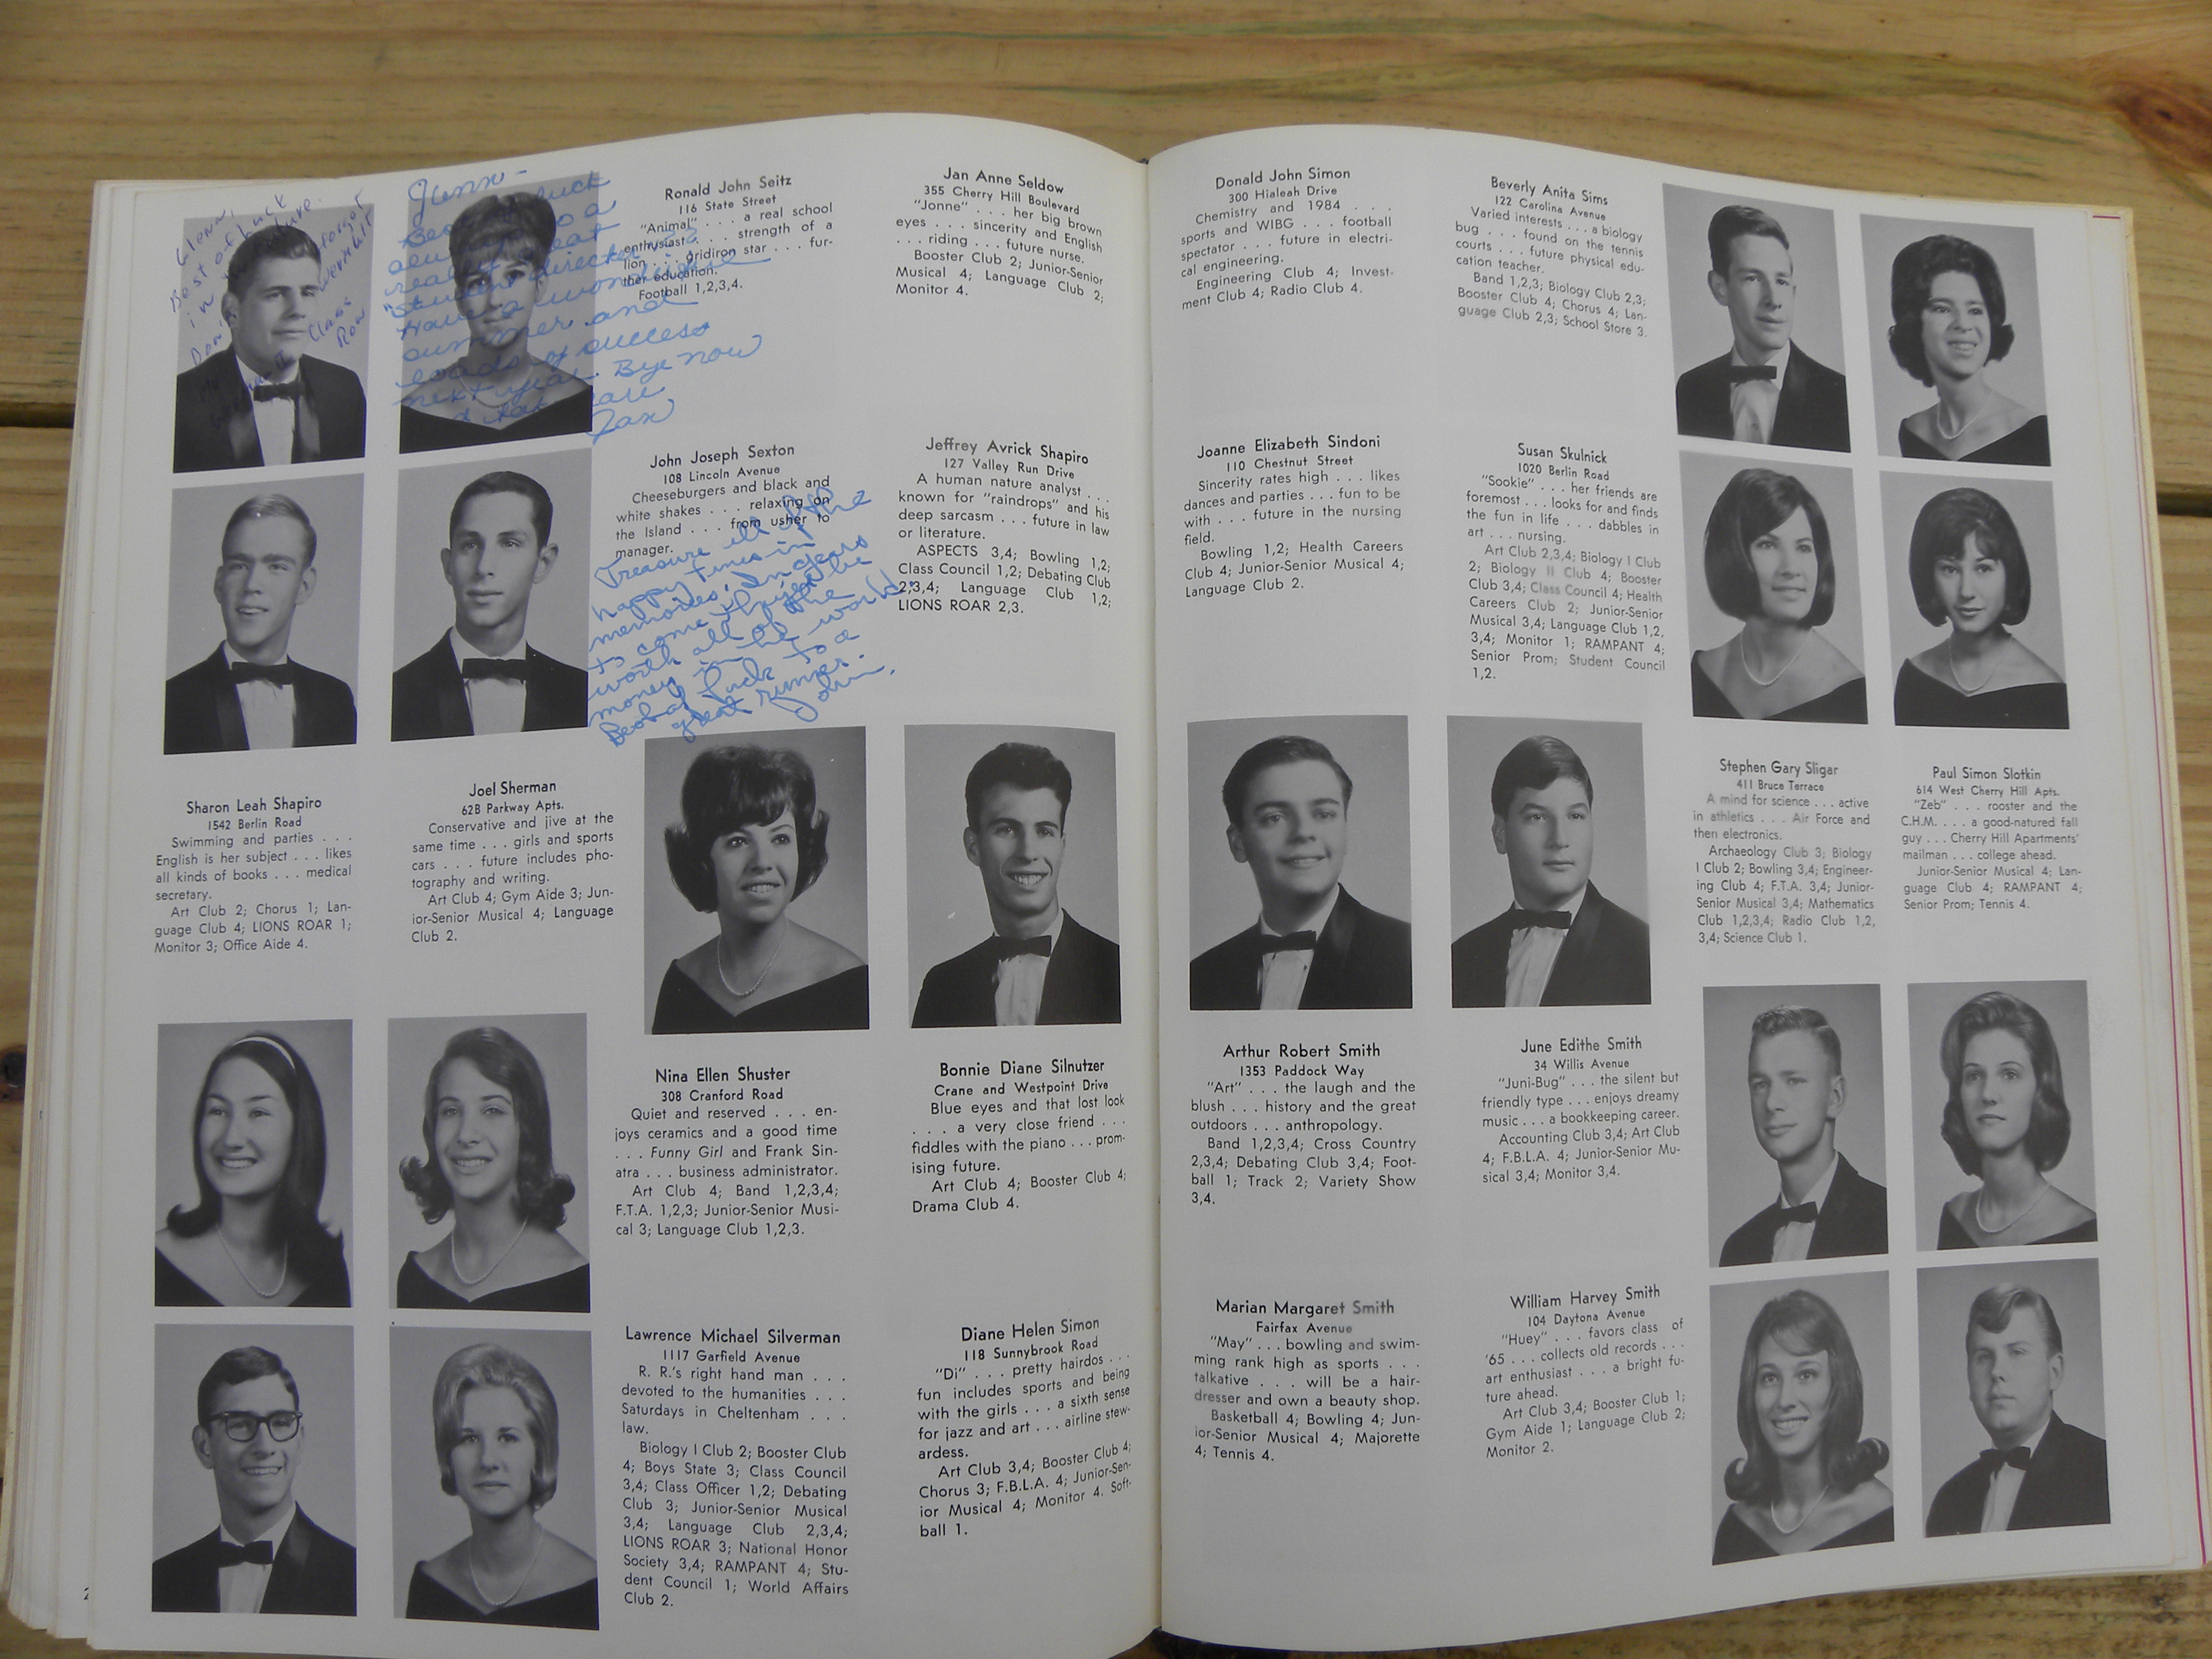 Glenn,
Best of luck
in the future.
Don't forget
World Lit
Class
Ron
Glenn -
Best of luck
always to a
really great
"student director"
Have a wonderful
summer and
loads of success
next year. Bye now
Jan
Ronald John Seitz
116 State Street
"Animal" . . . a real school
enthusiast . . . strength of a
lion . . . gridiron star . . . fur-
ther education.
Football 1,2,3,4.
Jan Anne Seldow
355 Cherry Hill Boulevard
"Jonne" . . . her big brown
eyes . . . sincerity and English
. . . riding . . . future nurse.
Booster Club 2; Junior-Senior
Musical 4; Language Club 2;
Monitor 4.
John Joseph Sexton
108 Lincoln Avenue
Cheeseburgers and black and
white shakes . . . relaxing on
the Island . . . from usher to
manager.
Treasure all of the
happy times in
memories. In years
to come they'll be
worth all of the
money in the world.
Best of luck to a
great runner.
John
Jeffrey Avrick Shapiro
127 Valley Run Drive
A human nature analyst . . .
known for "raindrops" and his
deep sarcasm . . . future in law
or literature.
ASPECTS 3,4; Bowling 1,2;
Class Council 1,2; Debating Club
2,3,4; Language Club 1,2;
LIONS ROAR 2,3.
Sharon Leah Shapiro
1542 Berlin Road
Swimming and parties . . .
English is her subject . . . likes
all kinds of books . . . medical
secretary.
Art Club 2; Chorus 1; Lan-
guage Club 4; LIONS ROAR 1;
Monitor 3; Office Aide 4.
Joel Sherman
62B Parkway Apts.
Conservative and jive at the
same time . . . girls and sports
cars . . . future includes pho-
tography and writing.
Art Club 4; Gym Aide 3; Jun-
ior-Senior Musical 4; Language
Club 2.
Nina Ellen Shuster
308 Cranford Road
Quiet and reserved . . . en-
joys ceramics and a good time
. . . Funny Girl and Frank Sin-
atra . . . business administrator.
Art Club 4; Band 1,2,3,4;
F.T.A. 1,2,3; Junior-Senior Musi-
cal 3; Language Club 1,2,3.
Bonnie Diane Silnutzer
Crane and Westpoint Drive
Blue eyes and that lost look
. . . a very close friend . . .
fiddles with the piano . . . prom-
ising future.
Art Club 4; Booster Club 4;
Drama Club 4.
Lawrence Michael Silverman
1117 Garfield Avenue
R. R.'s right hand man . . .
devoted to the humanities . . .
Saturdays in Cheltenham . . .
law.
Biology I Club 2; Booster Club
4; Boys State 3; Class Council
3,4; Class Officer 1,2; Debating
Club 3; Junior-Senior Musical
3,4; Language Club 2,3,4;
LIONS ROAR 3; National Honor
Society 3,4; RAMPANT 4; Stu-
dent Council 1; World Affairs
Club 2.
Diane Helen Simon
118 Sunnybrook Road
"Di" . . . pretty hairdos . . .
fun includes sports and being
with the girls . . . a sixth sense
for jazz and art . . . airline stew-
ardess.
Art Club 3,4; Booster Club 4;
Chorus 3; F.B.L.A. 4; Junior-Sen-
ior Musical 4; Monitor 4. Soft-
ball 1.
2
Donald John Simon
300 Hialeah Drive
Chemistry and 1984 . . .
sports and WIBG . . . football
spectator . . . future in electri-
cal engineering.
Engineering Club 4; Invest-
ment Club 4; Radio Club 4.
Beverly Anita Sims
122 Carolina Avenue
Varied interests . . . a biology
bug . . . found on the tennis
courts . . . future physical edu-
cation teacher.
Band 1,2,3; Biology Club 2,3;
Booster Club 4; Chorus 4; Lan-
guage Club 2,3; School Store 3.
Joanne Elizabeth Sindoni
110 Chestnut Street
Sincerity rates high . . . likes
dances and parties . . . fun to be
with . . . future in the nursing
field.
Bowling 1,2; Health Careers
Club 4; Junior-Senior Musical 4;
Language Club 2.
Susan Skulnick
1020 Berlin Road
"Sookie" . . . her friends are
foremost . . . looks for and finds
the fun in life . . . dabbles in
art . . . nursing.
Art Club 2,3,4; Biology I Club
2; Biology II Club 4; Booster
Club 3,4; Class Council 4; Health
Careers Club 2; Junior-Senior
Musical 3,4; Language Club 1,2,
3,4; Monitor 1; RAMPANT 4;
Senior Prom; Student Council
1,2.
Stephen Gary Sligar
411 Bruce Terrace
A mind for science . . . active
in athletics . . . Air Force and
then electronics.
Archaeology Club 3; Biology
I Club 2; Bowling 3,4; Engineer-
ing Club 4; F.T.A. 3,4; Junior-
Senior Musical 3,4; Mathematics
Club 1,2,3,4; Radio Club 1,2,
3,4; Science Club 1.
Paul Simon Slotkin
614 West Cherry Hill Apts.
"Zeb" . . . rooster and the
C.H.M. . . . a good-natured fall
guy . . . Cherry Hill Apartments'
mailman . . . college ahead.
Junior-Senior Musical 4; Lan-
guage Club 4; RAMPANT 4;
Senior Prom; Tennis 4.
Arthur Robert Smith
1353 Paddock Way
"Art" . . . the laugh and the
blush . . . history and the great
outdoors . . . anthropology.
Band 1,2,3,4; Cross Country
2,3,4; Debating Club 3,4; Foot-
ball 1; Track 2; Variety Show
3,4.
June Edithe Smith
34 Willis Avenue
"Juni-Bug" . . . the silent but
friendly type . . . enjoys dreamy
music . . . a bookkeeping career.
Accounting Club 3,4; Art Club
4; F.B.L.A. 4; Junior-Senior Mu-
sical 3,4; Monitor 3,4.
Marian Margaret Smith
Fairfax Avenue
"May" . . . bowling and swim-
ming rank high as sports . . .
talkative . . . will be a hair-
dresser and own a beauty shop.
Basketball 4; Bowling 4; Jun-
ior-Senior Musical 4; Majorette
4; Tennis 4.
William Harvey Smith
104 Daytona Avenue
"Huey" . . . favors class of
'65 . . . collects old records . . .
art enthusiast . . . a bright fu-
ture ahead.
Art Club 3,4; Booster Club 1;
Gym Aide 1; Language Club 2;
Monitor 2.